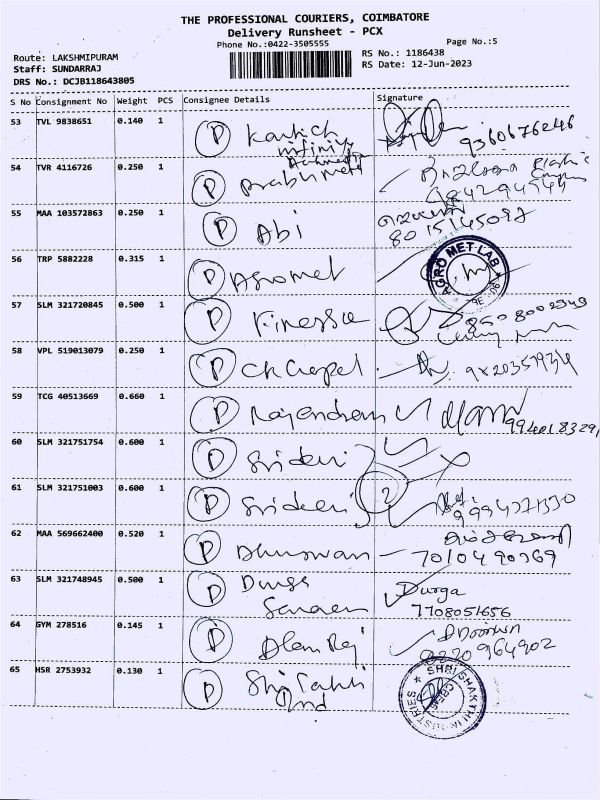 THE PROFESSIONAL COURIERS, COIMBATORE
Delivery Runsheet - PCX
Phone No.:0422-3505555 Page No.:5
Route: LAKSHMIPURAM RS No.: 1186438
Staff: SUNDARRAJ RS Date: 12-Jun-2023
DRS No.: DCJB118643805
S No Consignment No Weight PCS Consignee Details Signature
53 TVL 9838651 0.140 1 P Kartich 9360676246
infinity
54 TVR 4116726 0.250 1 P Prabu
55 MAA 103572863 0.250 1 P Abi 8015145097
56 TRP 5882228 0.315 1 P Agromet AGRO MET LAB
57 SLM 321720845 0.500 1 P Finessie 8508002349
58 VPL 519013079 0.250 1 P CK Chapel
59 TCG 40513669 0.660 1 P Rajendran 9940183291
60 SLM 321751754 0.600 1 P Sri devi
61 SLM 321751003 0.600 1 P Sri devi 2
62 MAA 569662400 0.520 1 P 7010490369
63 SLM 321748945 0.500 1 P Durga Durga
7708051656
64 GYM 278516 0.145 1 P 9220964902
65 HSR 2753932 0.130 1 P Shri Sakthi SHRI SHAKTHI INDUSTRIES
Ind